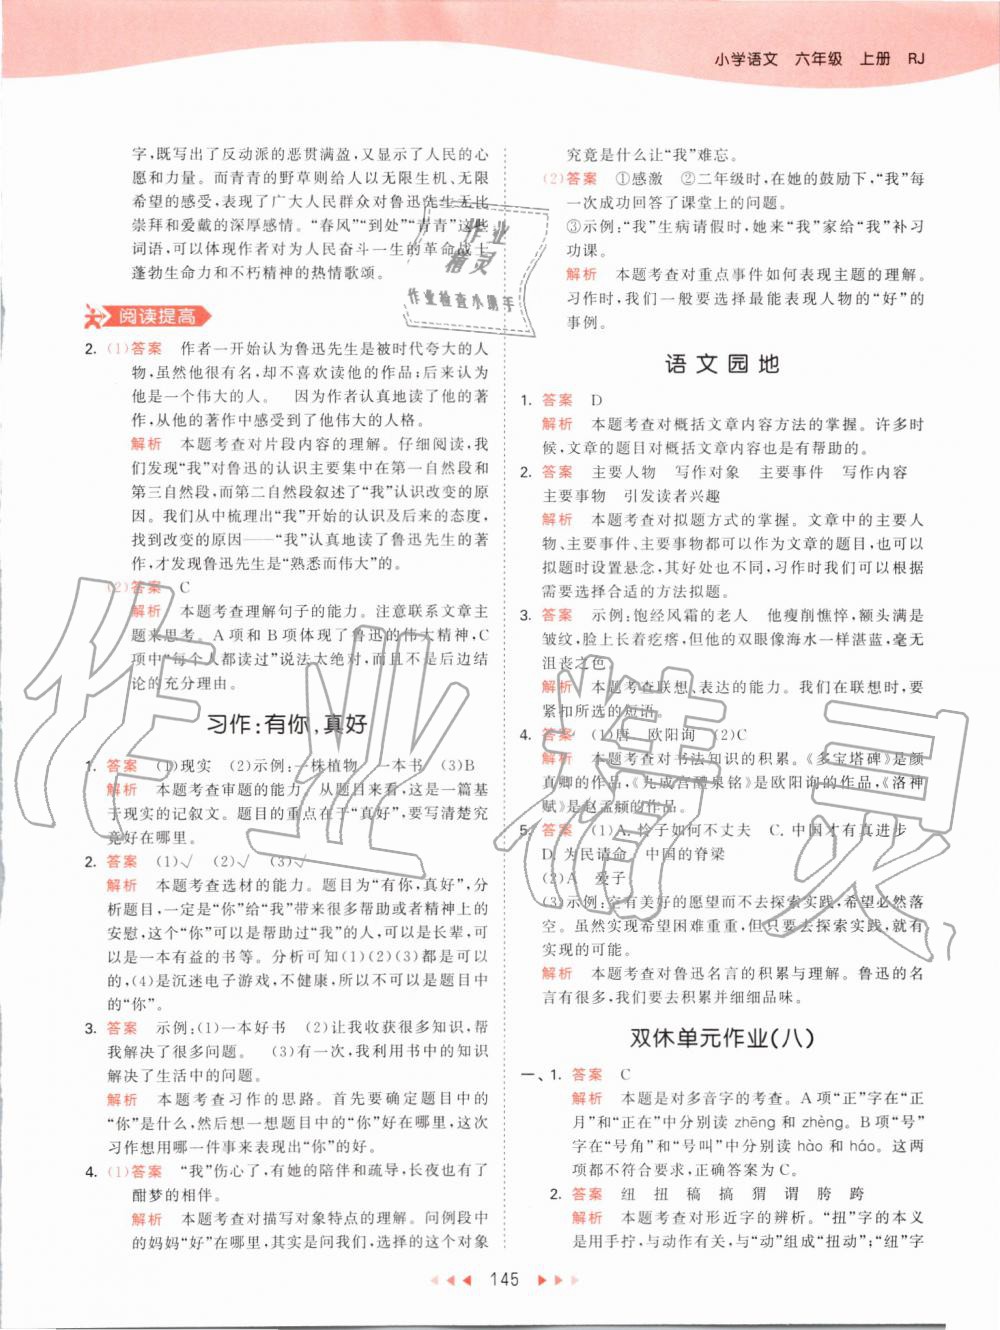 小学语文 六年级 上册 RJ
字,既写出了反动派的恶贯满盈,又显示了人民的心
愿和力量。而青青的野草则给人以无限生机、无限
希望的感受,表现了广大人民群众对鲁迅先生无比
崇拜和爱戴的深厚感情。“春风”“到处”“青青”这些
词语,可以体现作者对为人民奋斗一生的革命战士
蓬勃生命力和不朽精神的热情歌颂。
阅读提高
2. (1)答案 作者一开始认为鲁迅先生是被时代夸大的人
物,虽然他很有名,却不喜欢读他的作品;后来认为
他是一个伟大的人。 因为作者认真地读了他的著
作,从他的著作中感受到了他伟大的人格。
解析 本题考查对片段内容的理解。仔细阅读,我
们发现“我”对鲁迅的认识主要集中在第一自然段和
第三自然段,而第二自然段叙述了“我”认识改变的原
因。我们从中梳理出“我”开始的认识及后来的态度,
找到改变的原因——“我”认真地读了鲁迅先生的著
作,才发现鲁迅先生是“熟悉而伟大”的。
(2)答案 C
解析 本题考查理解句子的能力。注意联系文章主
题来思考。A项和B项体现了鲁迅的伟大精神,C
项中“每个人都读过”说法太绝对,而且不是后边结
论的充分理由。
习作:有你,真好
1. 答案 (1)现实 (2)示例:一株植物 一本书 (3)B
解析 本题考查审题的能力。从题目来看,这是一篇基
于现实的记叙文。题目的重点在于“真好”,要写清楚究
竟好在哪里。
2. 答案 (1)√ (2)√ (3)√
解析 本题考查选材的能力。题目为“有你,真好”,分
析题目,一定是“你”给“我”带来很多帮助或者精神上的
安慰,这个“你”可以是帮助过“我”的人,可以是长辈,可
以是一本有益的书等。分析可知(1)(2)(3)都是可以
的,(4)是沉迷电子游戏,不健康,所以不可以是题目中
的“你”。
3. 答案 示例:(1)一本好书 (2)让我收获很多知识,帮
我解决了很多问题。 (3)有一次,我利用书中的知识
解决了生活中的问题。
解析 本题考查习作的思路。首先要确定题目中的
“你”是什么,然后想一想题目中的“你”好在哪里,这次
习作想用哪一件事来表现出“你”的好。
4. (1)答案 “我”伤心了,有她的陪伴和疏导,长夜也有了
酣梦的相伴。
解析 本题考查对描写对象特点的理解。问例段中
的妈妈“好”在哪里,其实是问我们,选择的这个对象
究竟是什么让“我”难忘。
(2)答案 ①感激 ②二年级时,在她的鼓励下,“我”每
一次成功回答了课堂上的问题。
③示例:“我”生病请假时,她来“我”家给“我”补习
功课。
解析 本题考查对重点事件如何表现主题的理解。
习作时,我们一般要选择最能表现人物的“好”的
事例。
语文园地
1. 答案 D
解析 本题考查对概括文章内容方法的掌握。许多时
候,文章的题目对概括文章内容也是有帮助的。
2. 答案 主要人物 写作对象 主要事件 写作内容
主要事物 引发读者兴趣
解析 本题考查对拟题方式的掌握。文章中的主要人
物、主要事件、主要事物都可以作为文章的题目,也可以
拟题时设置悬念,其好处也不同,习作时我们可以根据
需要选择合适的方法拟题。
3. 答案 示例:饱经风霜的老人 他瘦削憔悴,额头满是
皱纹,脸上长着疙瘩,但他的双眼像海水一样湛蓝,毫无
沮丧之色。
解析 本题考查联想、表达的能力。我们在联想时,要
紧扣所选的短语。
4. 答案 (1)唐 欧阳询 (2)C
解析 本题考查对书法知识的积累。《多宝塔碑》是颜
真卿的作品,《九成宫醴泉铭》是欧阳询的作品,《洛神
赋》是赵孟頫的作品。
5. 答案 (1)A. 怜子如何不丈夫 C. 中国才有真进步
D. 为民请命 中国的脊梁
(2)A 爱子
(3)示例:空有美好的愿望而不去探索实践,希望必然落
空。虽然实现希望困难重重,但只要去探索实践,就有
实现的可能。
解析 本题考查对鲁迅名言的积累与理解。鲁迅的名
言有很多,我们要去积累并细细品味。
双休单元作业(八)
一、1. 答案 C
解析 本题是对多音字的考查。A项“正”字在“正
月”和“正在”中分别读 zhēng 和 zhèng。B项“号”
字在“号角”和“号叫”中分别读 hào 和 háo。这两
项都不符合要求,正确答案为C。
2. 答案 纽 扭 稿 搞 猬 谓 胯 跨
解析 本题考查对形近字的辨析。“扭”字的本义
是用手拧,与动作有关,与“动”组成“扭动”;“纽”字
145
作业
精灵
作业检查小助手
作业精灵